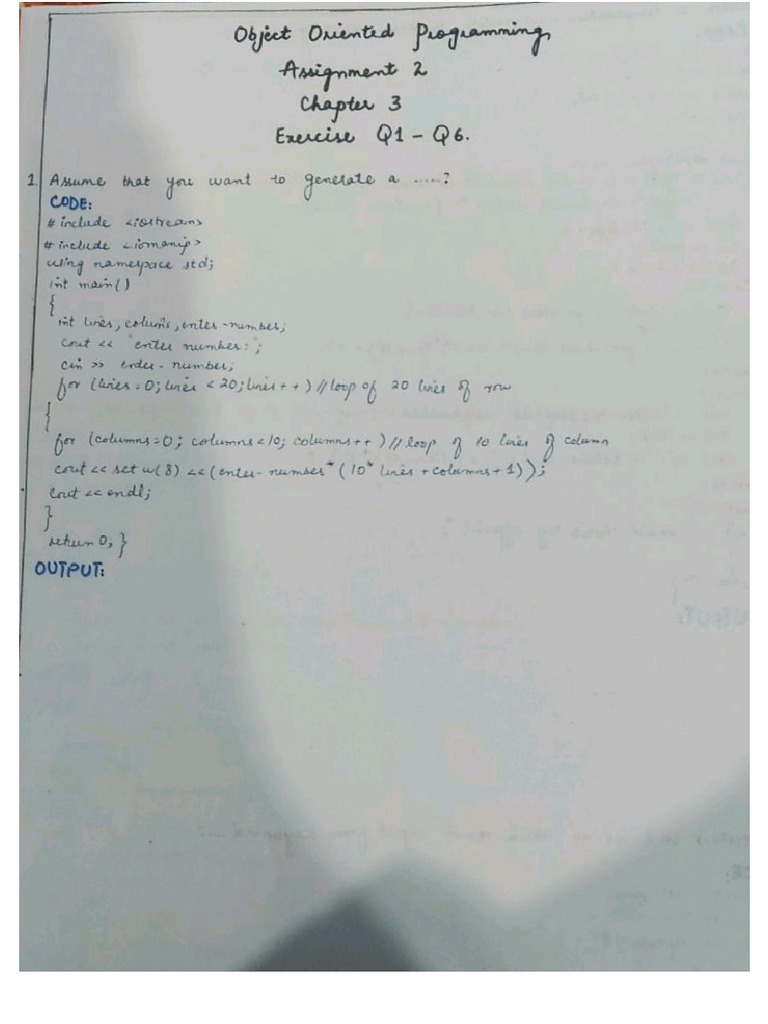 Object Oriented Programming
Assignment 2
Chapter 3
Exercise Q1 - Q6.
1. Assume that you want to generate a .....?
CODE:
# include <iostream>
# include <iomanip>
using namespace std;
int main()
{
int lines, colums, enter-number;
cout << "enter number:";
cin >> enter-number;
for (lines = 0; lines < 20; lines + +) // loop of 20 lines of row
{
for (columns = 0; columns < 10; columns + +) // loop of 10 lines of column
cout << set w(8) << (enter-number * (10 * lines + columns + 1));
cout << endl;
}
return 0; }
OUTPUT: